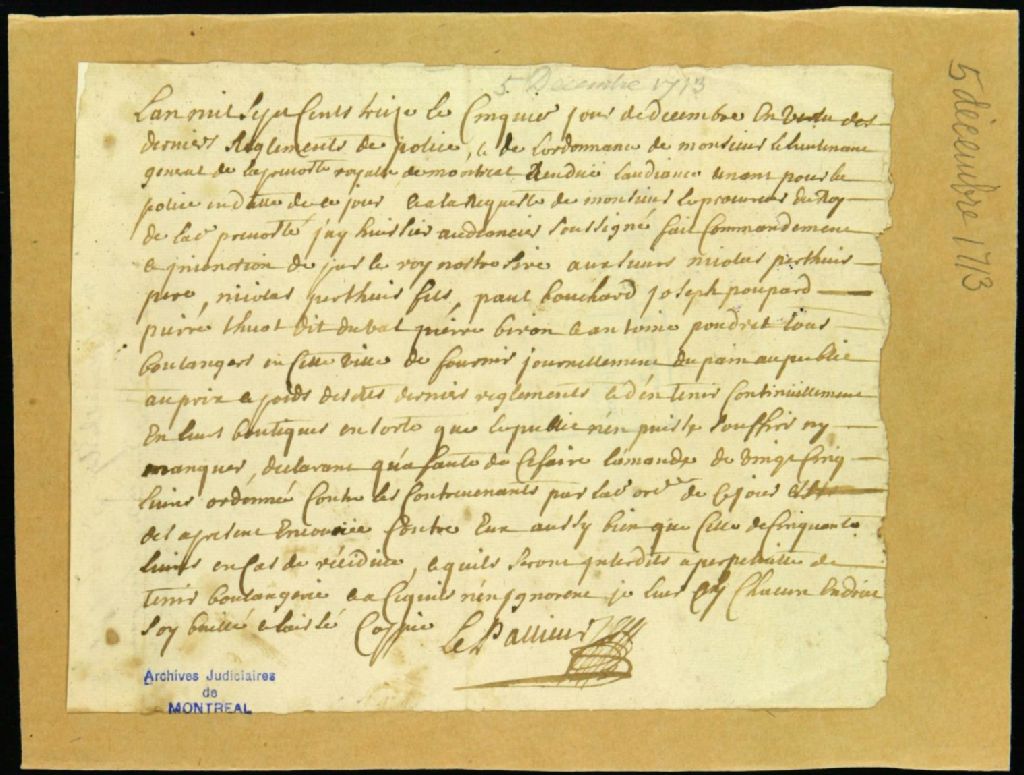 5 Decembre 1713
5 décembre 1713
Lan mil sept Cents treize le Cinquieᵉ jour de decembre En vertu des
derniers Reglements de police, & de Lordonnance de monsieur le lieutenant
general de la prevosté royalle de montreal Rendüe Laudiance tenant pour la
police en datte de ce jour & a la Requeste de monsieur le procureur du Roy
de lad prevosté jay huissier audiancier soussigné fait Commandement
& jnjonction de par le roy nostre sire aux sieurs nicolas perthuis
pere, nicolas perthuis fils, paul bouchard joseph poupard
pierre thuot dit duval pierre biron & antoine poudret tous
boulangers en Cette ville de fournir journellement du pain au public
au prix & poids desdits derniers reglements & d'en tenir Continüellement
En leurs boutiques en sorte que le public n'en puisse souffrir ny
manquer, declarant qu'a faute de Ce faire lamande de vingt Cinq
livres ordonnée Contre les Contrevenants par lad orᶜᵉ de Ce jour
des apresent Encourüe Contre Eux aussy bien que Celle de Cinquante
livres en Cas de récidive, & quils seront jnterdits a perpetuitté de
tenir boulangerie & a Ce quils n'en jgnorent je leur ay Chacun Endroit
soy baillé & laissé Coppie Le Pallieur
Archives Judiciaires
de
MONTREAL